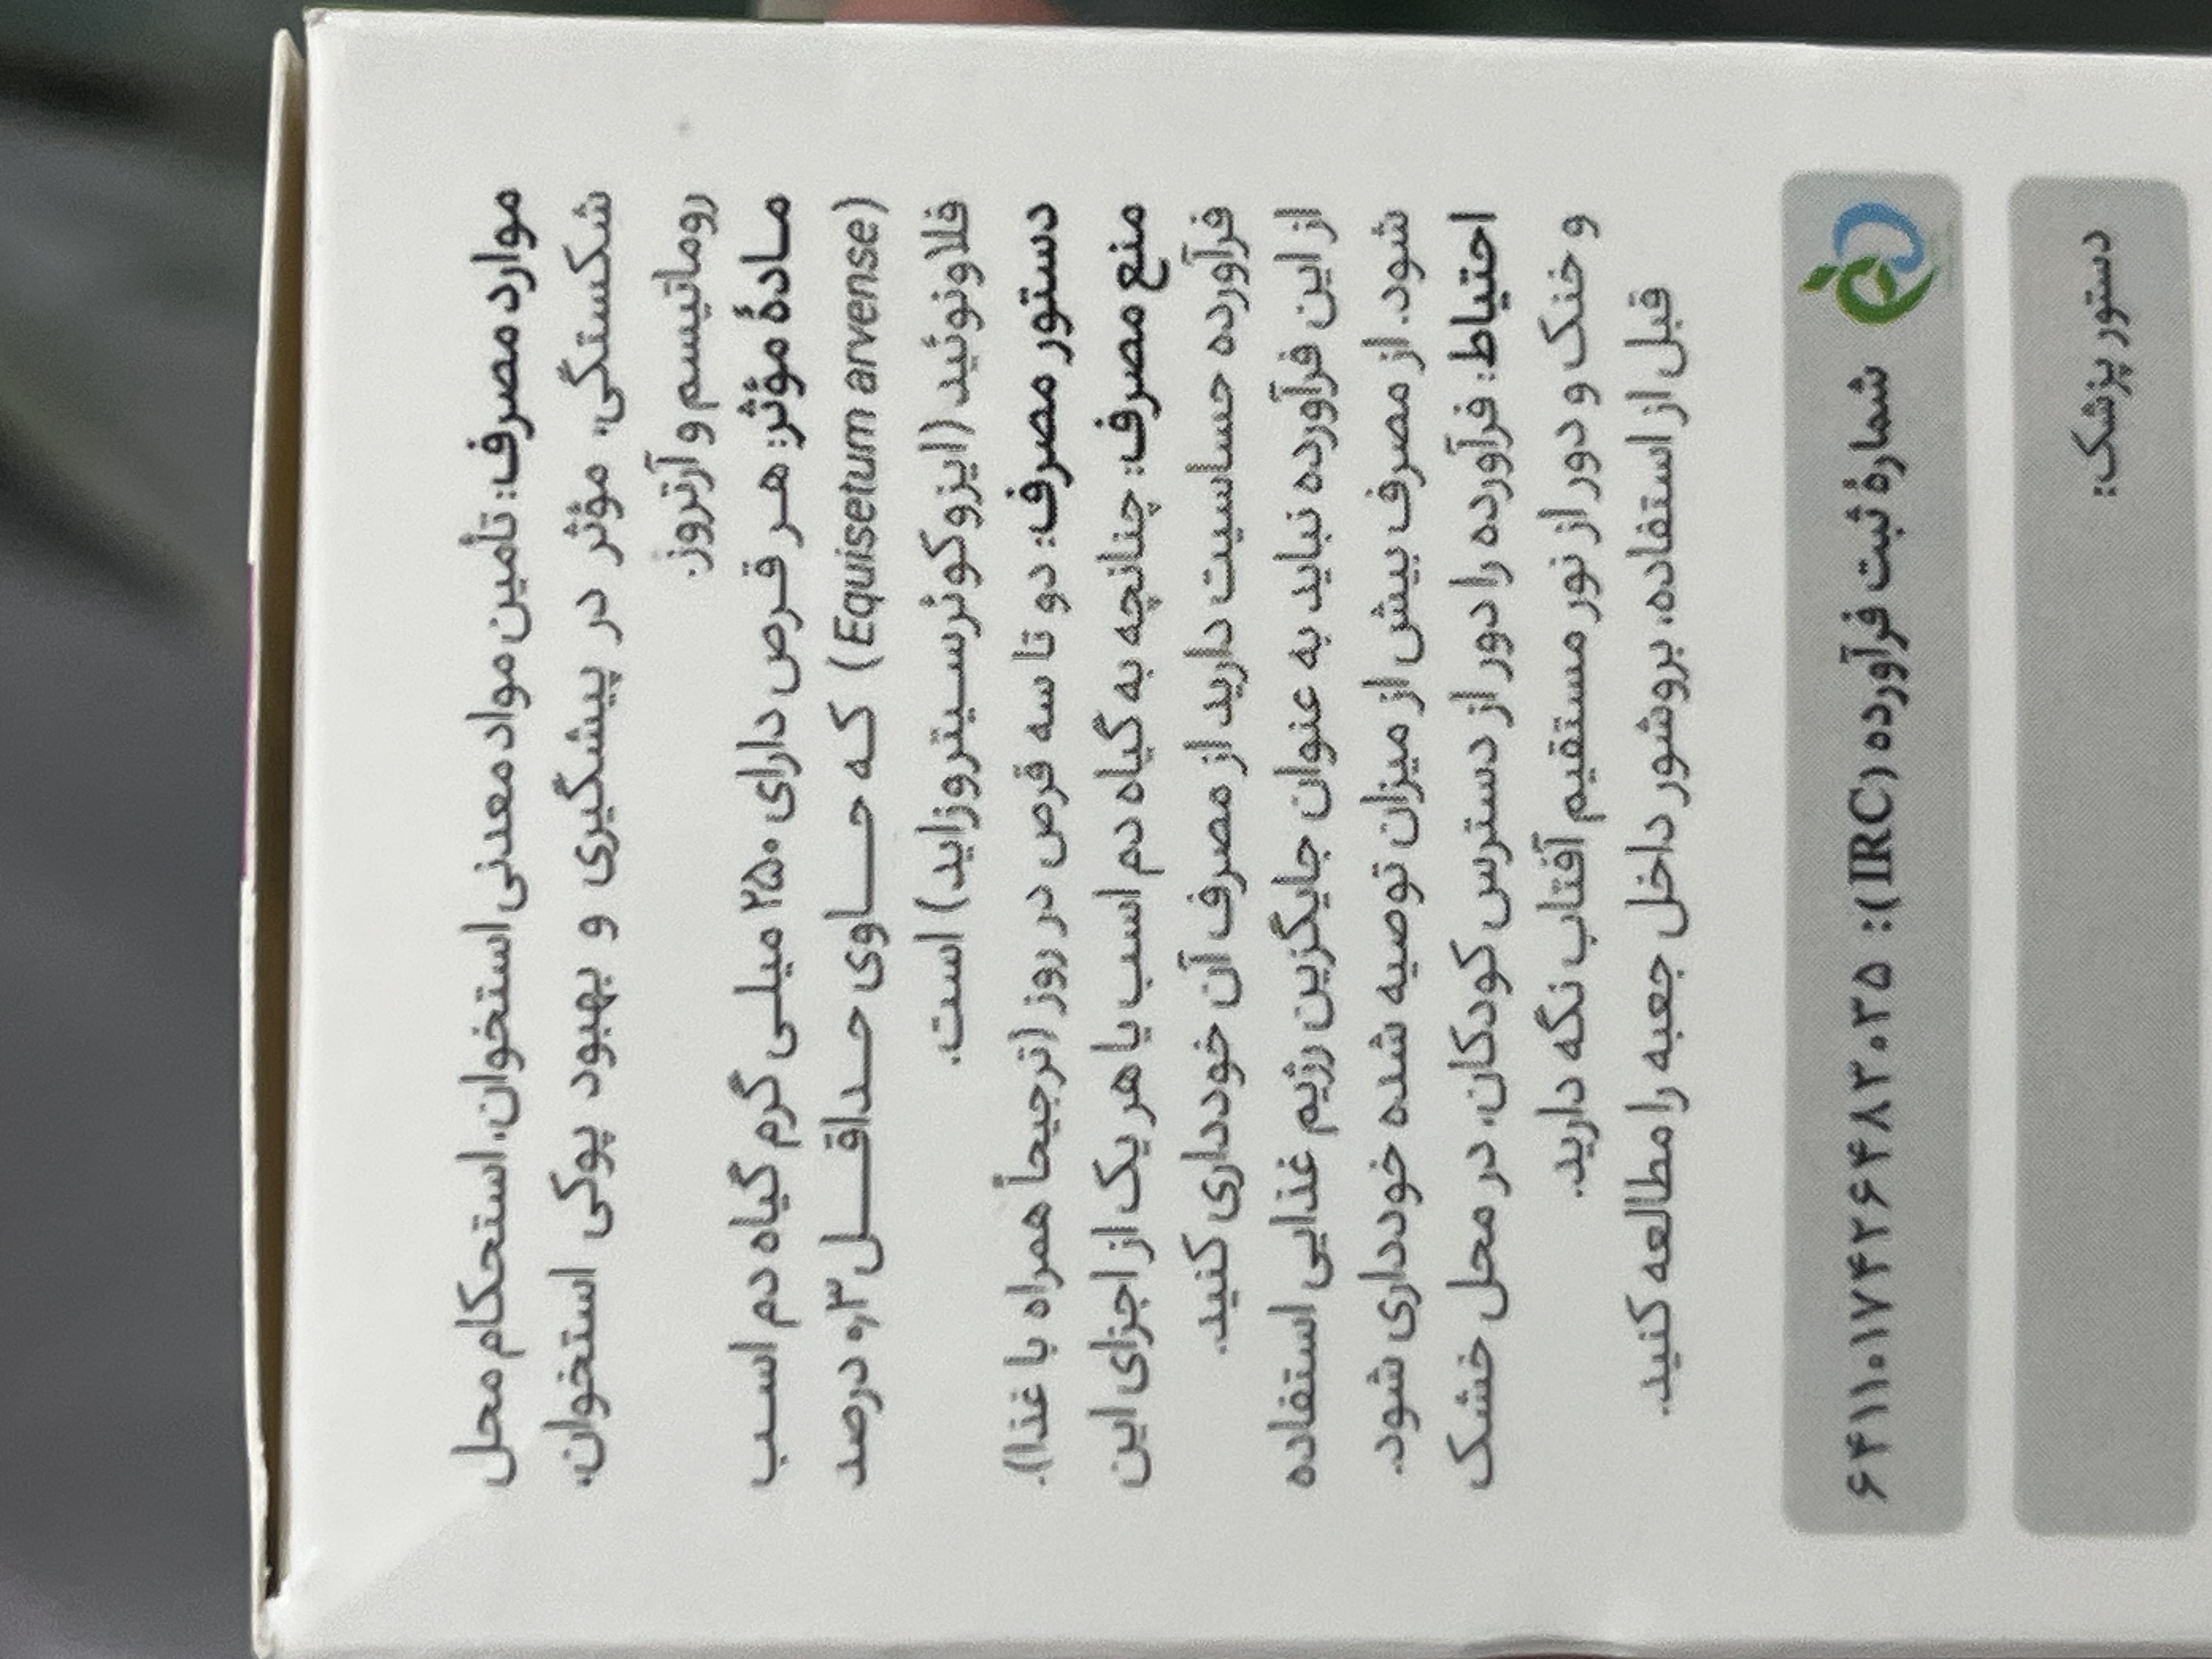 موارد مصرف: تأمین مواد معدنی استخوان، استحکام محل
شکستگی، مؤثر در پیشگیری و بهبود پوکی استخوان،
روماتیسم و آرتروز.
مادهٔ مؤثر: هر قرص دارای ۲۵۰ میلی گرم گیاه دم اسب
(Equisetum arvense) که حاوی حداقل ۰٫۳ درصد
فلاونوئید (ایزوکوئرسیتروزاید) است.
دستور مصرف: دو تا سه قرص در روز (ترجیحاً همراه با غذا).
منع مصرف: چنانچه به گیاه دم اسب یا هر یک از اجزای این
فرآورده حساسیت دارید از مصرف آن خودداری کنید.
از این فرآورده نباید به عنوان جایگزین رژیم غذایی استفاده
شود. از مصرف بیش از میزان توصیه شده خودداری شود.
احتیاط: فرآورده را دور از دسترس کودکان، در محل خشک
و خنک و دور از نور مستقیم آفتاب نگه دارید.
قبل از استفاده، بروشور داخل جعبه را مطالعه کنید.
شمارهٔ ثبت فرآورده (IRC): ۶۴۱۱۰۱۷۴۲۶۶۴۸۲۰۳۵
دستور پزشک: